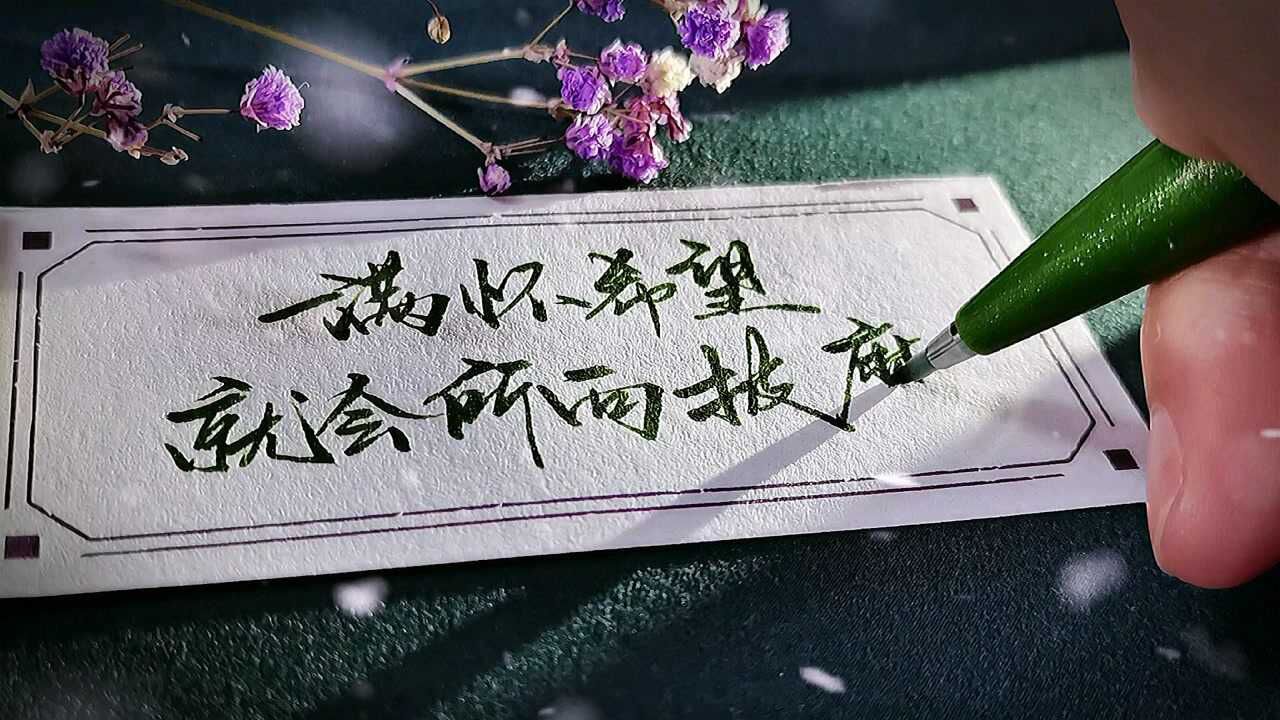 满怀希望
就会所向披靡